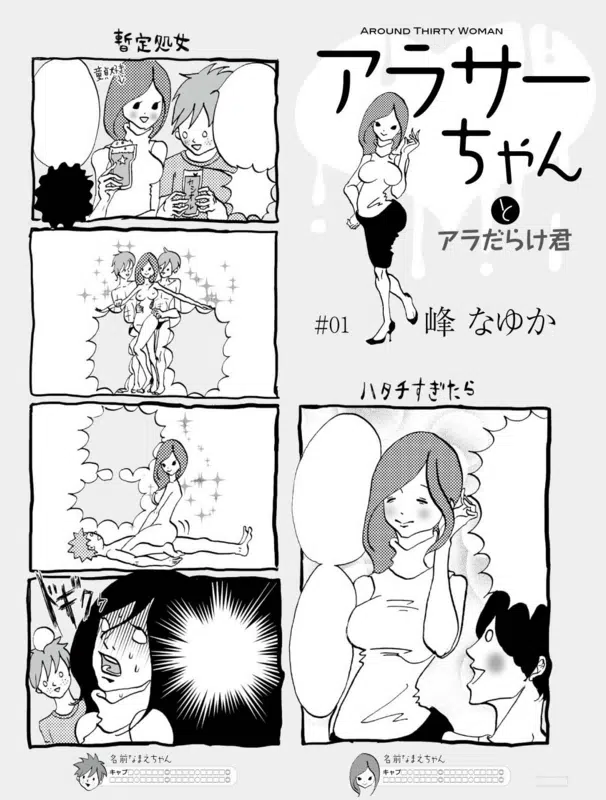 AROUND THIRTY WOMAN
アラサー
ちゃん
と
アラだらけ君
#01 峰 なゆか
ハタチすぎたら
暫定処女
ドギクッ
名前なまえちゃん
キャプ
名前なまえちゃん
キャプ